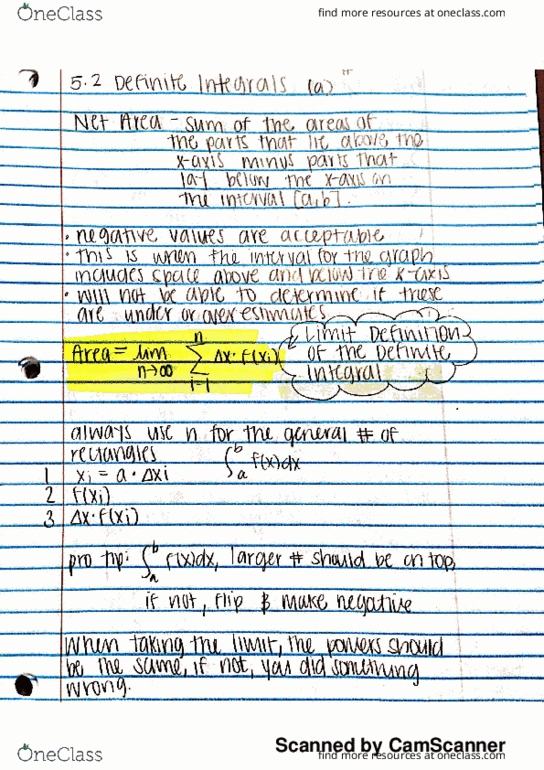 OneClass
find more resources at oneclass.com
5.2 Definite Integrals (a)
Net Area - sum of the areas of
the parts that lie above the
x-axis minus parts that
lay below the x-axis on
the interval [a,b].
· negative values are acceptable
· this is when the interval for the graph
includes space above and below the x-axis
· will not be able to determine if these
are under or over estimates
Area = lim n→∞ n Σ i=1 Δx· f(xi)
Limit Definition
of the Definite
Integral
always use n for the general # of
rectangles
∫ab f(x)dx
1 xi = a · Δxi
2 f(xi)
3 Δx·f(xi)
pro tip: ∫ab f(x)dx, larger # should be on top,
if not, flip & make negative
When taking the limit, the powers should
be the same, if not, you did something
wrong.
Scanned by CamScanner
OneClass
find more resources at oneclass.com